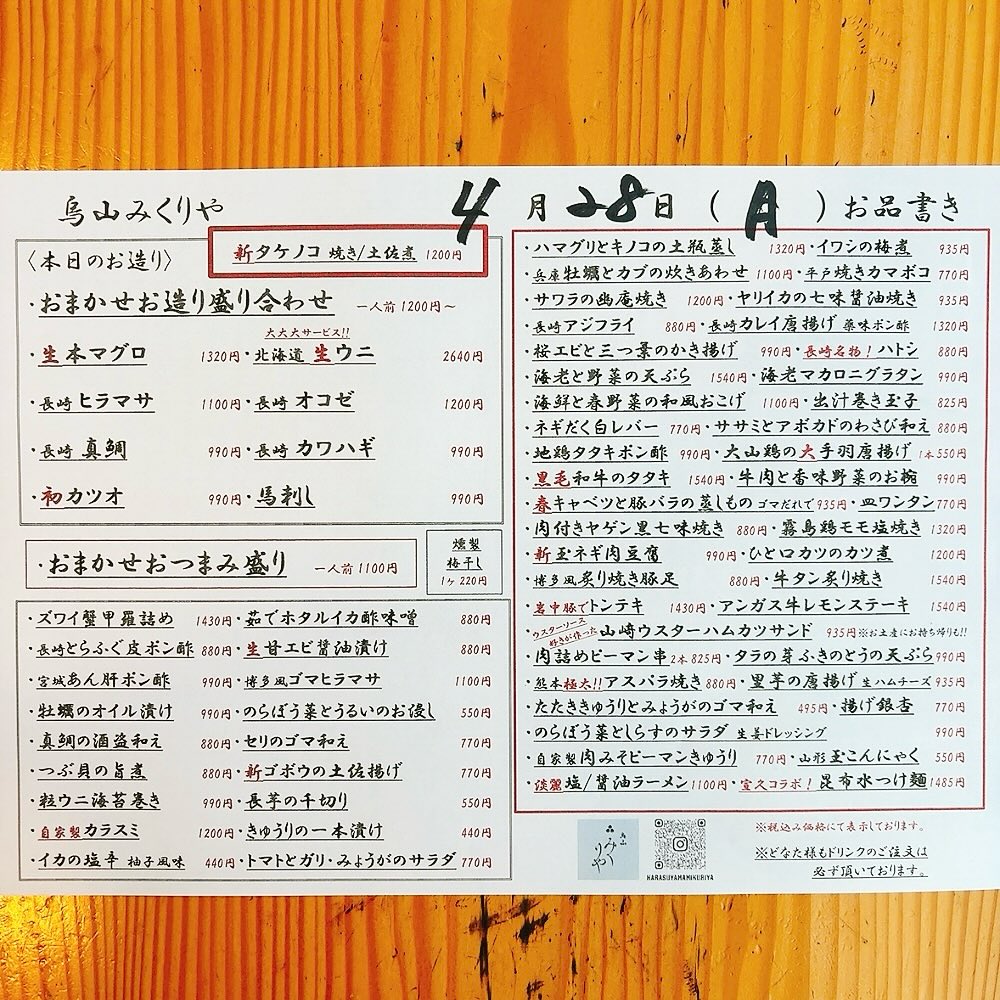 烏山みくりや 4月28日(月)お品書き
〈本日のお造り〉
新タケノコ 焼き/土佐煮 1200円
・おまかせお造り盛り合わせ 一人前1200円~
大大大サービス!!
・生本マグロ 1320円・北海道 生ウニ 2640円
・長崎 ヒラマサ 1100円・長崎 オコゼ 1200円
・長崎 真鯛 990円・長崎 カワハギ 990円
・初カツオ 990円・馬刺し 990円
・おまかせおつまみ盛り 一人前1100円
燻製
梅干し
1ヶ220円
・ズワイ蟹甲羅詰め 1430円・茹でホタルイカ酢味噌 880円
・長崎とらふぐ皮ポン酢 880円・生甘エビ醤油漬け 880円
・宮城あん肝ポン酢 990円・博多風ゴマヒラマサ 1100円
・牡蠣のオイル漬け 990円・のらぼう菜とうるいのお浸し 550円
・真鯛の酒盗和え 880円・セリのゴマ和え 770円
・つぶ貝の旨煮 880円・新ゴボウの土佐揚げ 770円
・粒ウニ海苔巻き 990円・長芋の千切り 550円
・自家製カラスミ 1200円・きゅうりの一本漬け 440円
・イカの塩辛 柚子風味 440円・トマトとガリ・みょうがのサラダ 770円
・ハマグリとキノコの土瓶蒸し 1320円・イワシの梅煮 935円
・兵庫牡蠣とカブの炊きあわせ 1100円・平戸焼きカマボコ 770円
・サワラの幽庵焼き 1200円・ヤリイカの七味醤油焼き 935円
・長崎アジフライ 880円・長崎カレイ唐揚げ 薬味ポン酢 1320円
・桜エビと三つ葉のかき揚げ 990円・長崎名物!ハトシ 880円
・海老と野菜の天ぷら 1540円・海老マカロニグラタン 990円
・海鮮と春野菜の和風おこげ 1100円・出汁巻き玉子 825円
・ネギだく白レバー 770円・ササミとアボカドのわさび和え 880円
・地鶏タタキポン酢 990円・大山鶏の大手羽唐揚げ 1本550円
・黒毛和牛のタタキ 1540円・牛肉と香味野菜のお椀 990円
・春キャベツと豚バラの蒸しもの ゴマだれで 935円・皿ワンタン 770円
・肉付きヤゲン黒七味焼き 880円・霧島鶏モモ塩焼き 1320円
・新玉ネギ肉豆腐 990円・ひと口カツのカツ煮 1200円
・博多風炙り焼き豚足 880円・牛タン炙り焼き 1540円
・岩中豚でトンテキ 1430円・アンガス牛レモンステーキ 1540円
・ウスターソース好きが作った 山崎ウスターハムカツサンド 935円※お土産にお持ち帰りも!!
・肉詰めピーマン串 2本825円・タラの芽ふきのとうの天ぷら 990円
・熊本極太!!アスパラ焼き 880円・里芋の唐揚げ 生ハムチーズ 935円
・たたききゅうりとみょうがのゴマ和え 495円・揚げ銀杏 770円
・のらぼう菜としらすのサラダ 生姜ドレッシング 990円
・自家製肉みそピーマンきゅうり 770円・山形玉こんにゃく 550円
・淡麗塩/醤油ラーメン 1100円・宣久コラボ!昆布水つけ麺 1485円
烏山
みくりや
KARASUYAMAMIKURIYA
※税込み価格にて表示しております。
※どなた様もドリンクのご注文は
必ず頂いております。